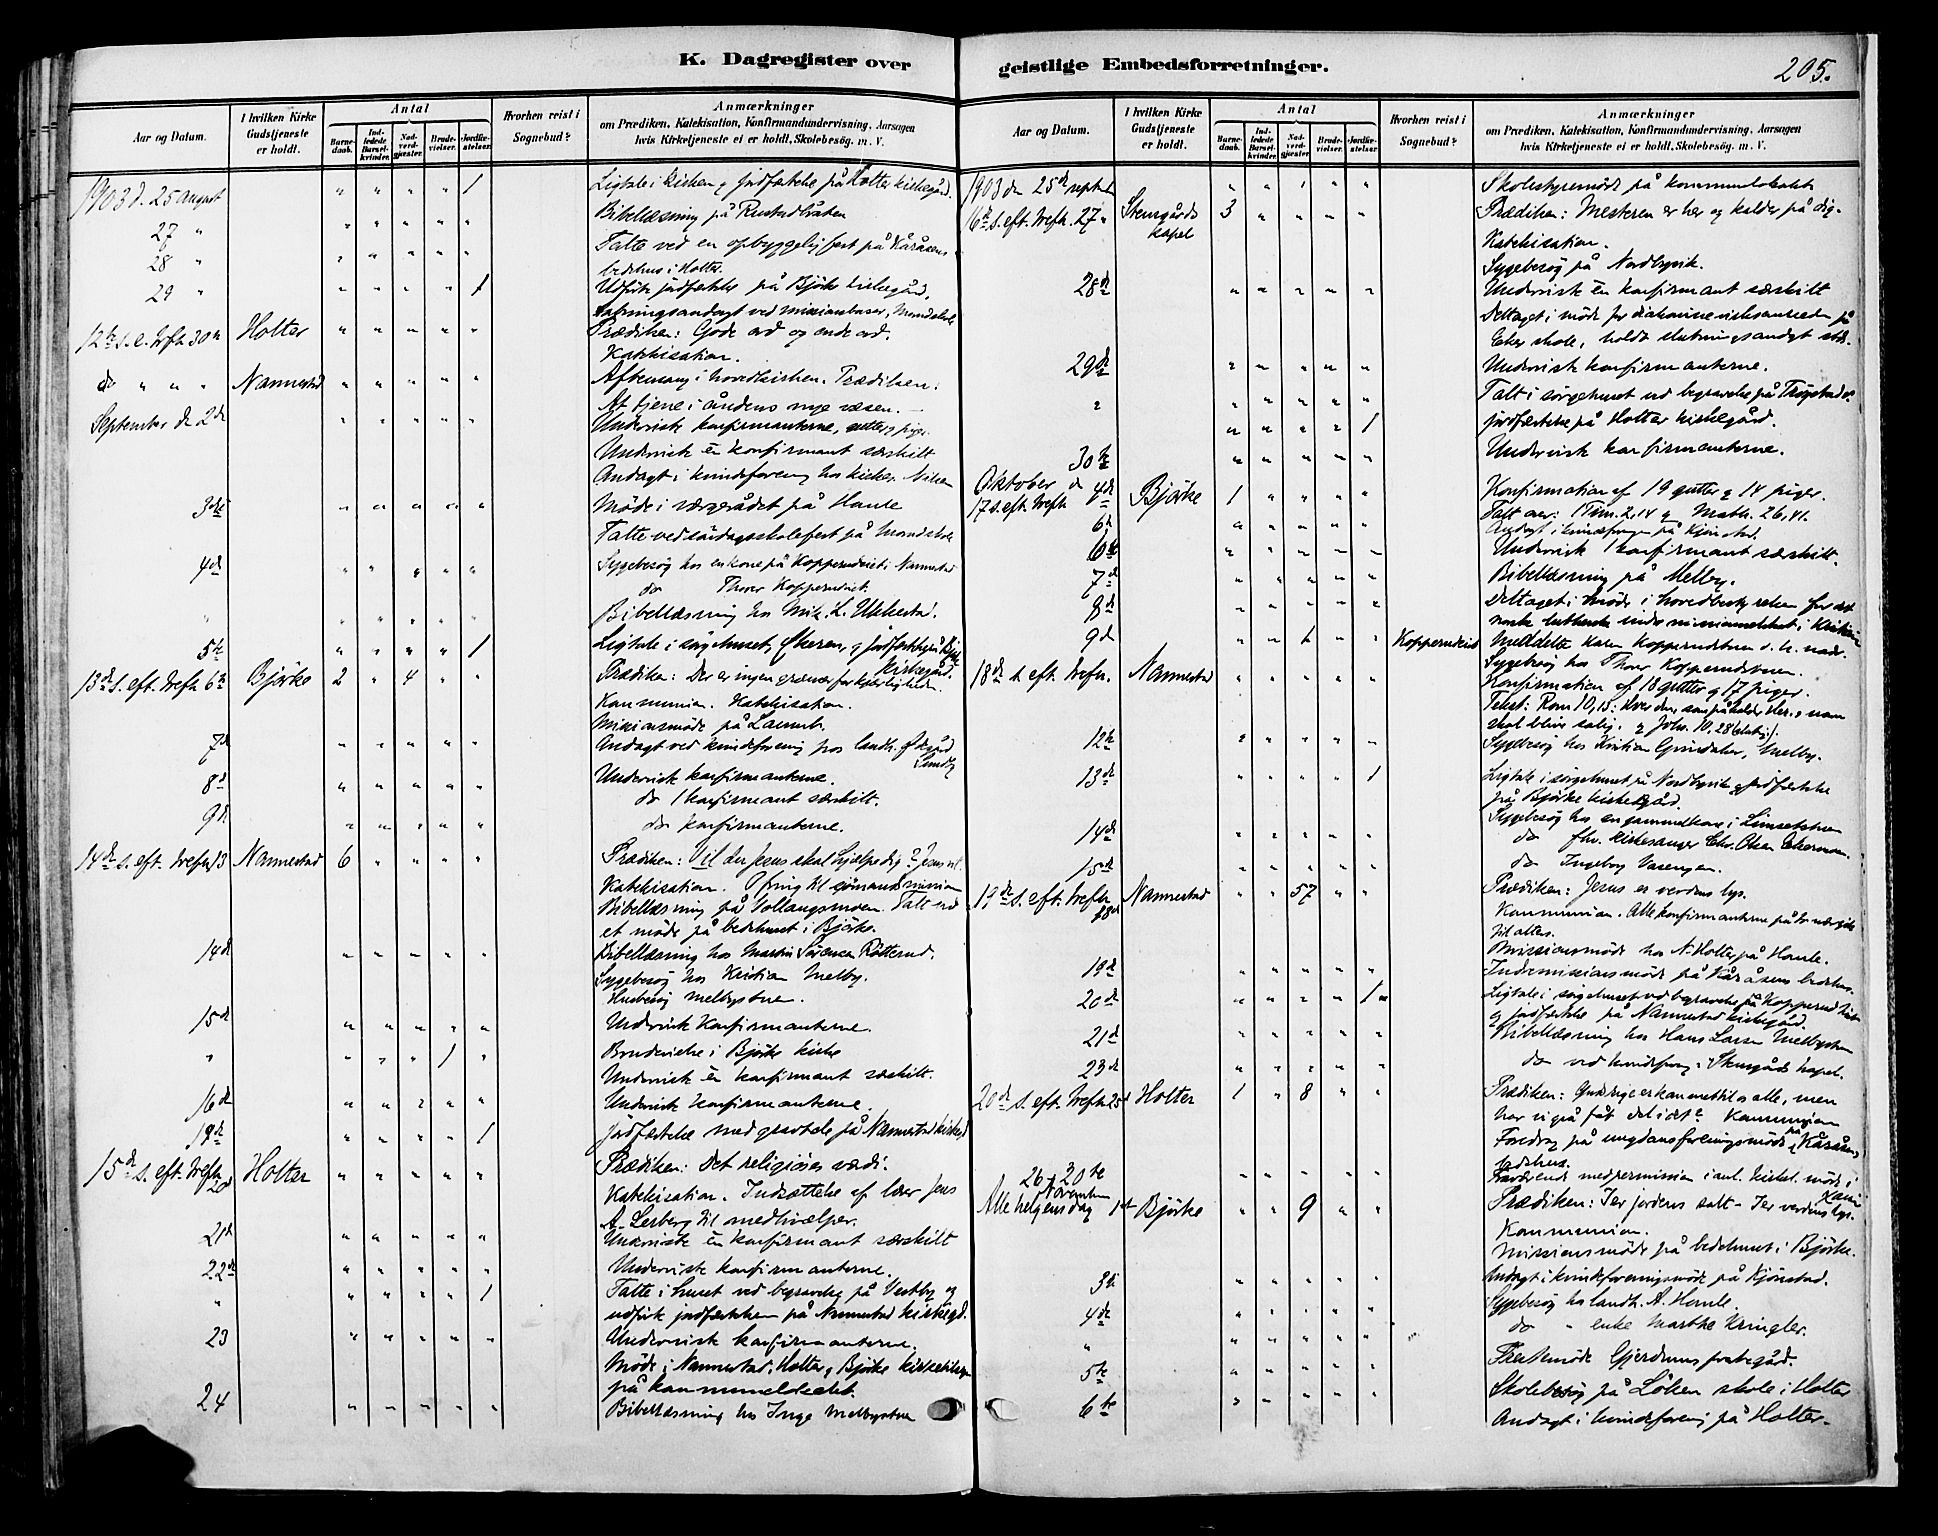 K. Dagregister over
geistlige Embedsforretninger.
205.
Aar og Datum.
I hvilken Kirke Gudstjeneste er holdt.
Antal
Barnedaab.
Indledede Barselkvinder.
Nadverdgjæster.
Brudevielser.
Jordfæstelser.
Hvorhen reist i Sognebud?
Anmærkninger
om Prædiken, Katekisation, Konfirmandundervisning, Aarsagen
hvis Kirketjeneste ei er holdt, Skolebesøg. m. V.
1903 d. 25 august " " " " 1 Ligtale i kirken & jordfæstelse på Holter kirkegård.
27 " " " " " " Bibellæsning på
28 " " " " " " Talte ved en opbyggelig fest på Kåråsens
bedehus i Holter.
29 " " " " " 1 Udførte jordfæstelse på Bjørke kirkegård.
12te s. e. trefh. 30te Holter " " " " " Prædiken: Gode ord og onde ord.
Katekisation.
do " " " Nannestad " " " " " Aftensang i hovedkirken. Prædiken:
At tjene i åndens nye væsen.
September d. 2d " " " " " Underviste konfirmanterne, gutter & piger.
Underviste én konfirmant særskilt
Andagt i kvindeforening hos
3die " " " " " Møde i værgerådet på
Talte ved søndagsskolefest på
4d " " " " " Sygebesøg hos en kone på Kopperudeiet i Nannestad
do Thorer Kopperudeiet.
" " " " " " Bibellæsning hos
5te " " " " 1 Ligtale i sørgehuset, & jordfæstelse på Bjørke kirkegård.
13de s. eft. trefh. 6te Bjørke 2 " 4 " " Prædiken: Der er ingen grænser for kjærligheden.
Kommunion. Katekisation.
Missionsmøde på
7d " " " " " Andagt ved kvindeforening hos landh.
8d " " " " " Underviste konfirmanterne.
do 1 konfirmant særskilt.
9d " " " " " do konfirmanterne.
14de s. eft. trefh. 13 Nannestad 6 " " " " Prædiken: Vil du Jesus skal hjælpe dig?
Katekisation. Ofring til sømandsmission
Bibellæsning på Vollaugsmoen. Talt ved
et møde på bedehuset i Bjørke.
14d " " " " " Bibellæsning hos Martin Sørensen Røtterud.
Sygebesøg hos Kristian Melby.
Husbesøg Melbystuen.
15d " " " " " Underviste konfirmanterne.
" " " " 1 " Brudevielse i Bjørke kirke
Underviste én konfirmant særskilt.
16d " " " " " Underviste konfirmanterne.
19de " " " " 1 Jordfæstelse med gravtale på Nannestad kirkegd
15de s. eft. trefh. 20d Holter " " " " " Prædiken: Det religiøse værdi.
Katekisation. Indsættelse af lærer Jens
til medhjælper.
21d " " " " " Underviste én konfirmant særskilt
22de " " " " " Underviste konfirmanterne.
" " " " " 1 Talte i huset ved begravelse på Vestby og
udførte jordfæstelsen på Nannestad kirkegd.
23 " " " " " Underviste konfirmanterne.
Møde i Nannestad, Holter, Bjørke kirketilsyn
på kommunelokalet.
24 " " " " " Bibellæsning hos Inge Melbystuen
Aar og Datum.
I hvilken Kirke Gudstjeneste er holdt.
Antal
Barnedaab.
Indledede Barselkvinder.
Nadverdgjæster.
Brudevielser.
Jordfæstelser.
Hvorhen reist i Sognebud?
Anmærkninger
om Prædiken, Katekisation, Konfirmandundervisning, Aarsagen
hvis Kirketjeneste ei er holdt, Skolebesøg. m. V.
1903 den 25de septbr " " " " " Skolestyremøde på kommunelokalet
16de s. eft. trefh. 27 " Stensgårds kapel 3 " " " " Prædiken: Mesteren er her og kalder på dig.
Katekisation.
Sygebesøg på Nordbysvik.
28de " " " " " Underviste én konfirmant særskilt
Deltaget i møde for diakonivirksomheden på
skole, holdt slutningsandagt
29de " " " " " Underviste konfirmanterne.
" " " " " " Talt i sørgehuset ved begravelse på
" " " " 1 jordfæstelse på Holter kirkegård.
30te " " " " " Underviste konfirmanterne.
Oktober d. 4de
17 s. eft. trefh. Bjørke 1 " " " " Konfirmation af 19 gutter & 14 piger.
Talt over: 1 Tim. 2,14 & Math. 26,41.
6te " " " " " Andagt i kvindeforeningen på Kjønstad.
6te " " " " " Underviste 1 konfirmant særskilt.
7d " " " " " Bibellæsning på Melby.
8d " " " " " Deltaget i møde i hovedbestyrelsen for det
norske lutherske indremissionsselskab i
9d " " 1 " " Kopperudeiet Meddelte Karen Kopperudstuen d. h. nadv.
Sygebesøg hos Thorer Kopperudstuen.
18de s. eft. trefh. Nannestad " " " " " Konfirmation af 18 gutter & 17 piger.
Tekst: Rom 10,13: Hver den, som påkalder Her. navn
skal blive salig, & Joh. 10,28
12te " " " " " Sygebesøg hos Kristian Melby.
13de " " " " 1 Ligtale i sørgehuset på Nordbysvik & jordfæstelse
på Bjørke kirkegård.
14de " " " " " Sygebesøg hos en gammel kone i
do fhv. kirkesanger Chr. Olsen
15de " " " " " do Ingeborg Vasengen.
19de s. eft. trefh. 18d Nannestad " " 57 " " Prædiken: Jesus er verdens lys.
Kommunion. Alle konfirmanterne på
til alters.
Missionsmøde hos N. Holter på
19d " " " " " Indremissionsmøde på Kåråsens bedehus.
20de " " " " 1 Ligtale i sørgehuset ved begravelse på Kopperud
& jordfæstelse på Nannestad kirkegård.
21d " " " " " Bibellæsning hos Hans Larsen Melbystuen
23de " " " " " do ved kvindeforening i Stensgårds kapel.
20de s. eft. trefh. 25d Holter 1 " 8 " " Prædiken: Guds rige er kommet til os alle, men
har vi også fåt det i det? Kommunion
Foredrag på ungdomsforeningsmøde på Kåråsens
bedehus.
26–30te " " " " " Fraværende med permission i anl. kirkel. møde i
Alle helgensdag November 1st Bjørke " " 9 " " Prædiken: I er jordens salt – I er verdens lys.
Kommunion.
Missionsmøde på bedehuset i Bjørke.
3di " " " " " Andagt i kvindeforeningsmøde på Kjønstad.
4de " " " " " Sygebesøg hos landh. A.
" " " " " " do " enke Marthe Kringler.
5te " " " " " Præstemøde Gjerdrums prestegård.
6te " " " " " Skolebesøg på Løken skole i Holter
Andagt i kvindeforening på Holter.